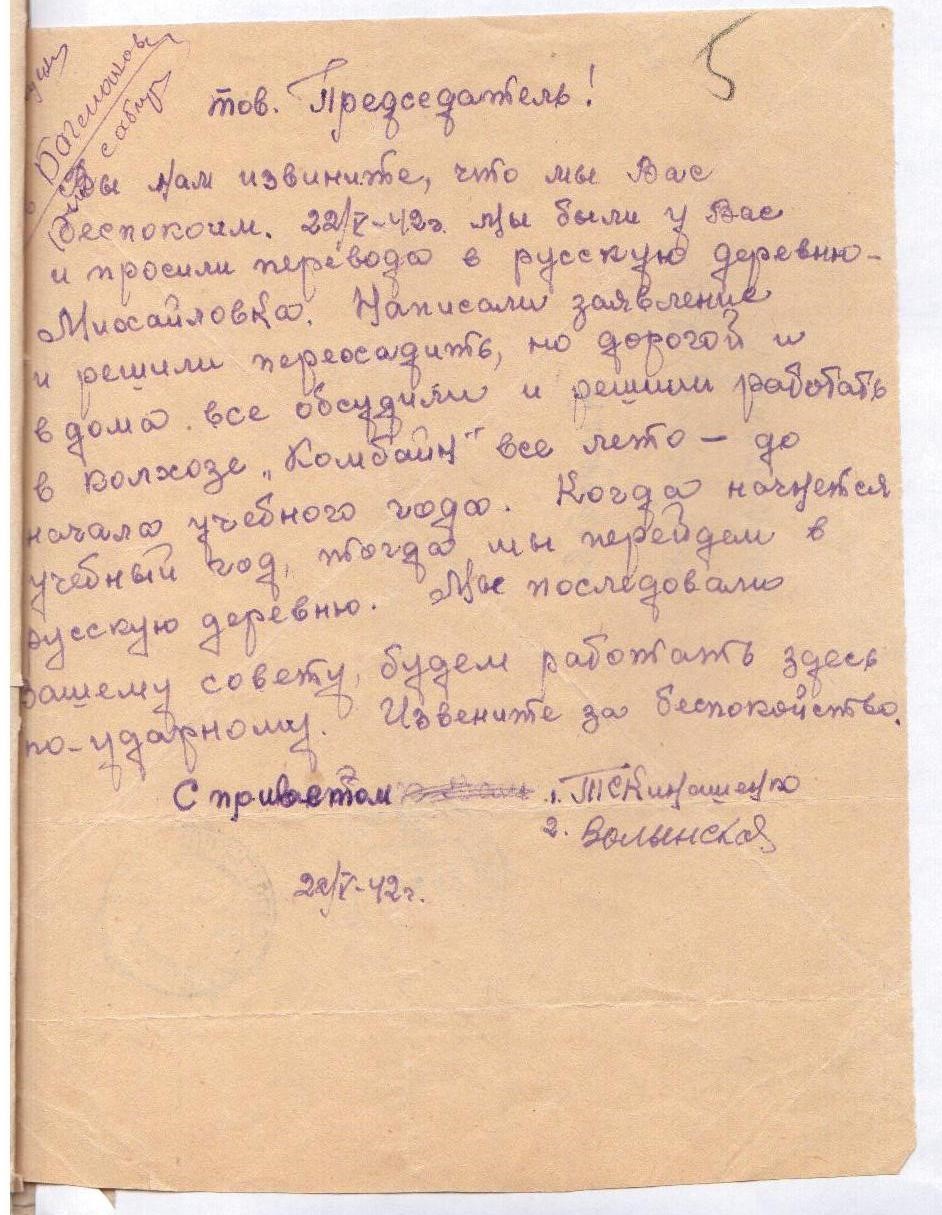 5
тов. Председатель!
Вы нам извините, что мы Вас
беспокоим. 22/V-42г. Мы были у Вас
и просили перевода в русскую деревню-
Михайловка. Написали заявление
и решили переосадить, но дорогой и
в дома все обсудили и решили работать
в колхозе „Комбайн" все лето – до
начала учебного года. Когда начнется
учебный год, тогда мы перейдем в
русскую деревню. Мы последовали
вашему совету, будем работать здесь
по-ударному. Извените за беспокойство.
С приветом 1. ТСКинашенко
2. Волынская
22/V-42г.